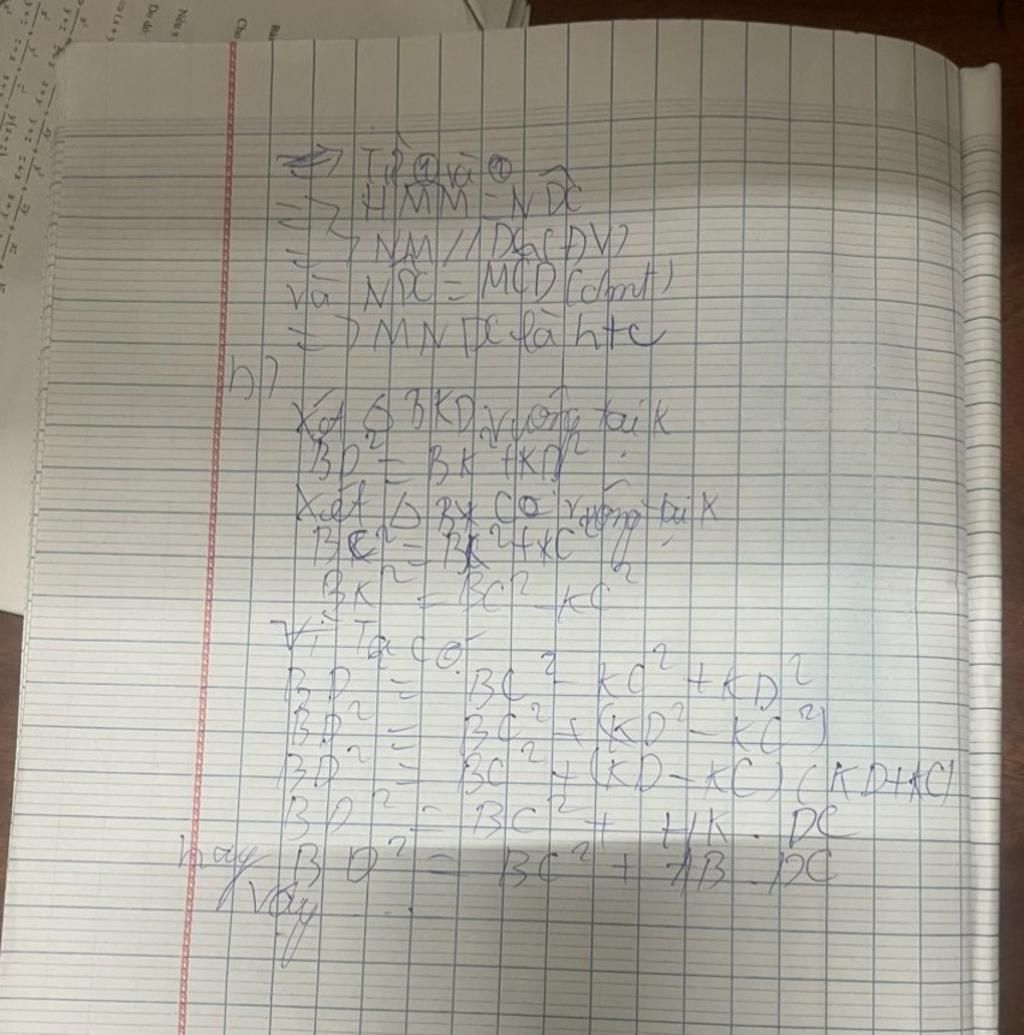 => Từ ① và ②
=> HMM = NDC
=> NM // DC (ĐV)
và NDC = MCD (cmt)
=> MNDC là htc
b)
Xét Δ BKD vuông tại K
BD² = BK² + KD²
Xét Δ BKC có vuông tại K
BC² = BK² + KC²
BK² = BC² - KC²
Vì Ta có
BD² = BC² - KC² + KD²
BD² = BC² + (KD² - KC²)
BD² = BC² + (KD - KC) (KD + KC)
BD² = BC² + HK . DC
hay BD² = BC² + AB . DC
Vậy